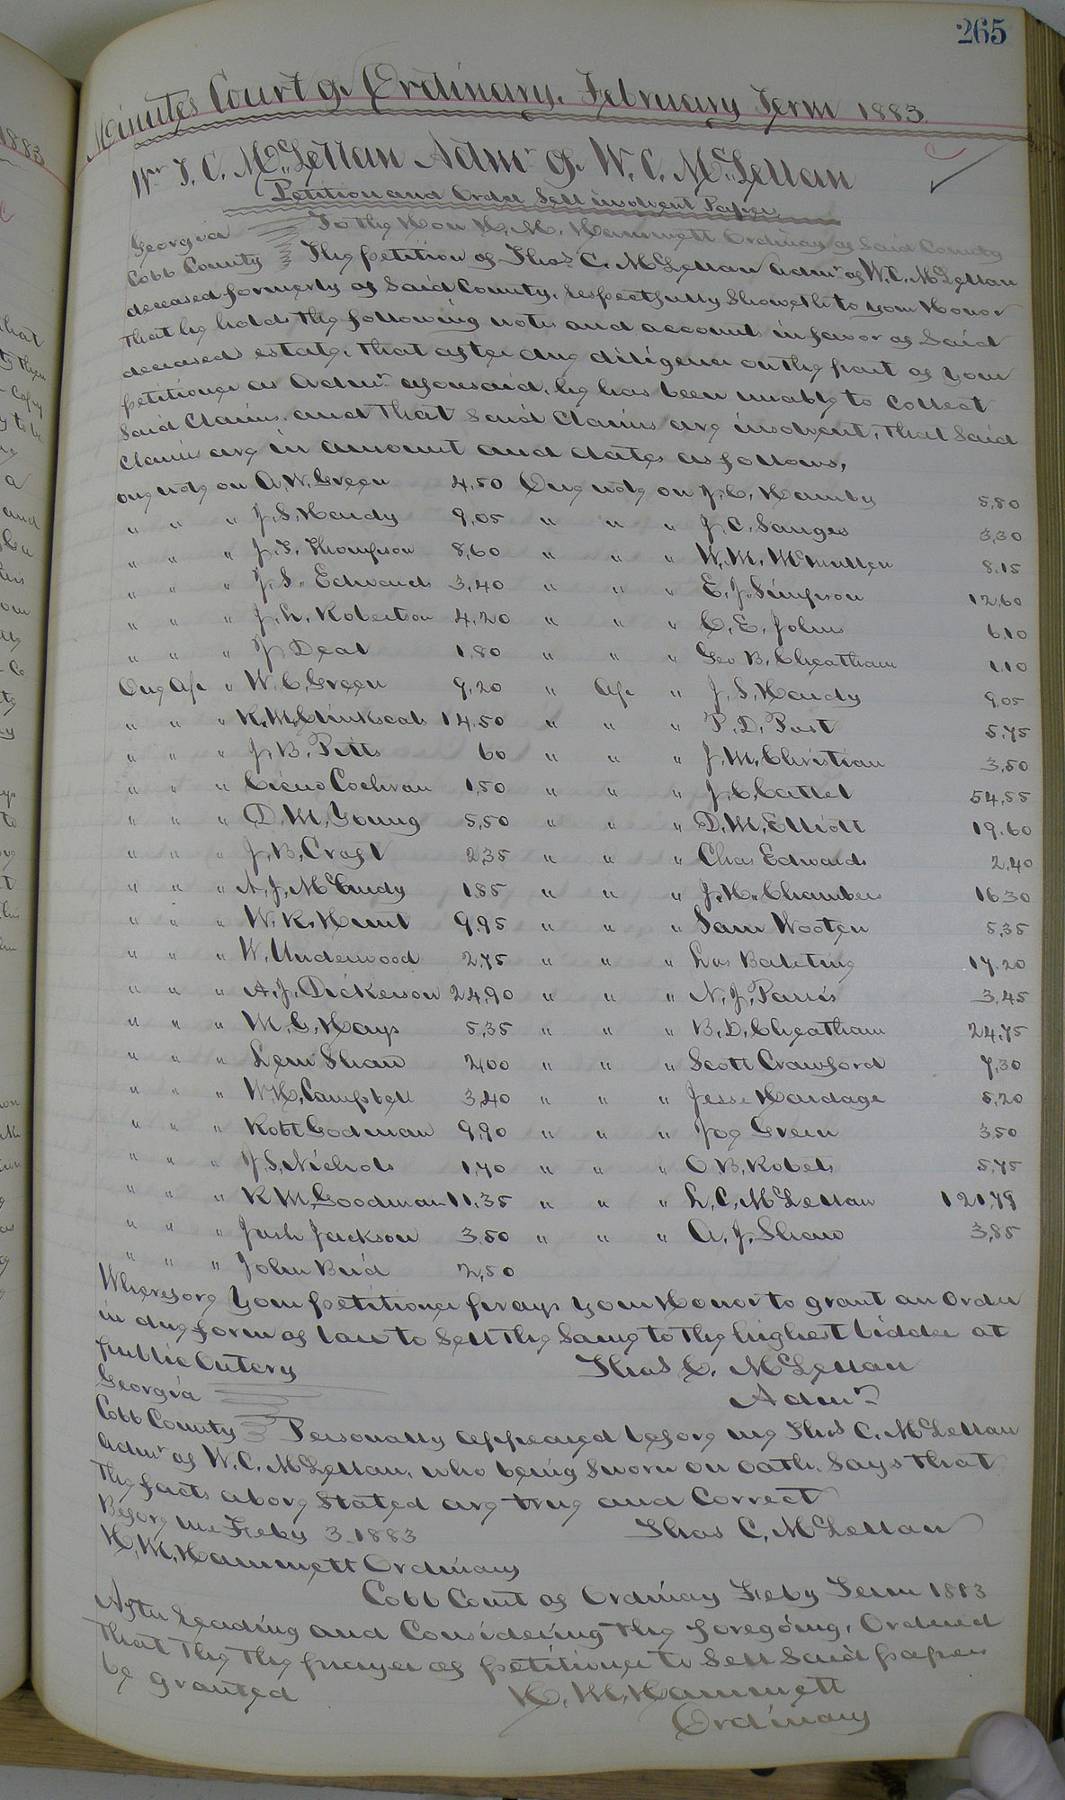 265
Minutes Court of Ordinary, February Term 1883
T. C. McLellan Admr of W. C. McLellan
Petition and Order Sell insolvent Papers
Georgia To the Hon H. M. Hammett Ordinary of Said County
Cobb County The petition of Thos C. McLellan admr of W. C. McLellan
deceased formerly of Said County, respectfully Showeth to your Honor
that he holds the following notes and accounts in favor of Said
deceased estate, that after due diligence on the part of your
petitioner as Admr aforesaid, he has been unable to collect
Said Claims, and that Said Claims are insolvent, that Said
Claims are in amount and dates as follows,
One note on A. W. Green 4,50 One note on J. C. Hamby 5,80
" " " J. S. Hardy 9,05 " " " J. C. Sanges 3,30
" " " J. T. Thompson 8,60 " " " W. M. McMullen 8.15
" " " J. S. Edwards 3,40 " " " E. J. Simpson 12,60
" " " J. L. Robertson 4,20 " " " C. E. Johns 6,10
" " " J. Deal 1,80 " " " Geo B. Cheatham 1,10
One a/c " W. C. Green 9,20 " a/c " J. S. Hardy 9,05
" " " R. M. Clinkscals 14,50 " " " P. D. Post 5,75
" " " J. B. Pitts 60 " " " J. M. Christian 3,50
" " " Cicero Cochran 1,50 " " " J. C. 54,55
" " " D. M. Young 5,50 " " " D. M. Elliott 19.60
" " " J. B. Craft 2,35 " " " Chas Edwards 2,40
" " " A. J. McCurdy 1,85 " " " J. H. Chambers 16,30
" " " W. R. Hunt 9,95 " " " Sam Wooten 5,35
" " " W. Underwood 2,75 " " " 17.20
" " " A. J. Dickerson 24,90 " " " N. J. Parris 3,45
" " " M. G. Hays 5,35 " " " B. D. Cheatham 24,75
" " " Lem Shaw 2,00 " " " Scott Crawford 7,30
" " " W. H. Campbell 3,40 " " " Jesse Hardage 5,20
" " " Robt Godman 9,90 " " " Joe Green 3,50
" " " J. S. Nichols 1,70 " " " O. B. Robets 5,75
" " " R. M. Goodman 11,35 " " " L. C. McLellan 121,79
" " " Jack Jackson 3,50 " " " A. J. Shaw 3,85
" " " John Reid 2,50
Wherefore your petitioner prays your Honor to grant an order
in due form of law to Sell the Same to the highest bidder at
public outcry Thos C. McLellan
Georgia Admr
Cobb County Personally appeared before me Thos C. McLellan
Admr of W. C. McLellan, who being Sworn on oath, Says that
the facts above Stated are true and Correct
Before me Feby 3 1883 Thos C. McLellan
H. M. Hammett Ordinary
Cobb Court of Ordinary Feby Term 1883
After reading and Considering the foregoing, Ordered
that the the prayer of petitioner to Sell Said papers
be granted H. M. Hammett
Ordinary